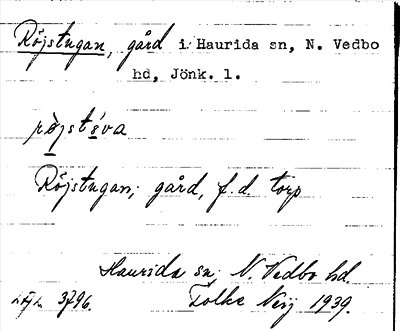 Röjstugan, gård i Haurida sn, N. Vedbo
hd, Jönk. l.
Röjstugan; gård, f.d. torp
Haurida sn, N. Vedbo hd.
3796. Folke Nery 1939.